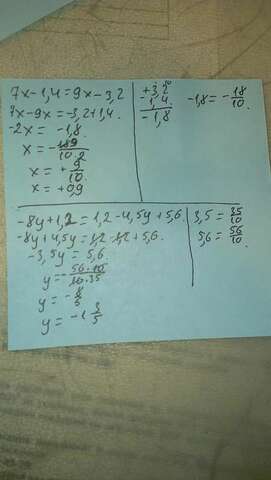 7x-1,4=9x-3,2
7x-9x=-3,2+1,4.
-2x= -1,8.
x= -18/10·2
x= +9/10
x= +0,9
+3,2
-1,4.
-1,8
-1,8= -18/10.
-8y+1,2=1,2-4,5y+5,6.
-8y+4,5y=1,2-1,2+5,6.
-3,5y= 5,6.
y= -56·10/10·35
y= -8/5
y= -1 3/5
3,5= 35/10
5,6= 56/10.